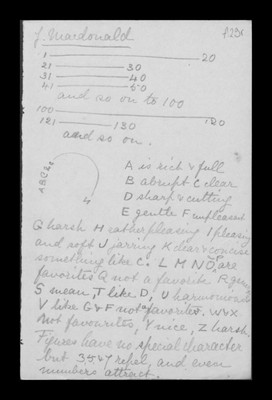 J. Macdonald
1 20
21 30
31 40
41 50
and so on to 100
100 120
121 130
and so on.
ABCde
A is rich & full
B abrupt C clear
D sharp & cutting
E gentle F unpleasant
G harsh H rather pleasing I pleasing
and soft J jarring K clear & concise
something like C. L M N O, are
favorites Q not a favorite R
S mean, T like D, U harmonious
V like G & F not favorites. W & X
not favourites, Y nice, Z harsh
Figures have no special character
but 3 5 & 7 repel, and even
numbers attract.